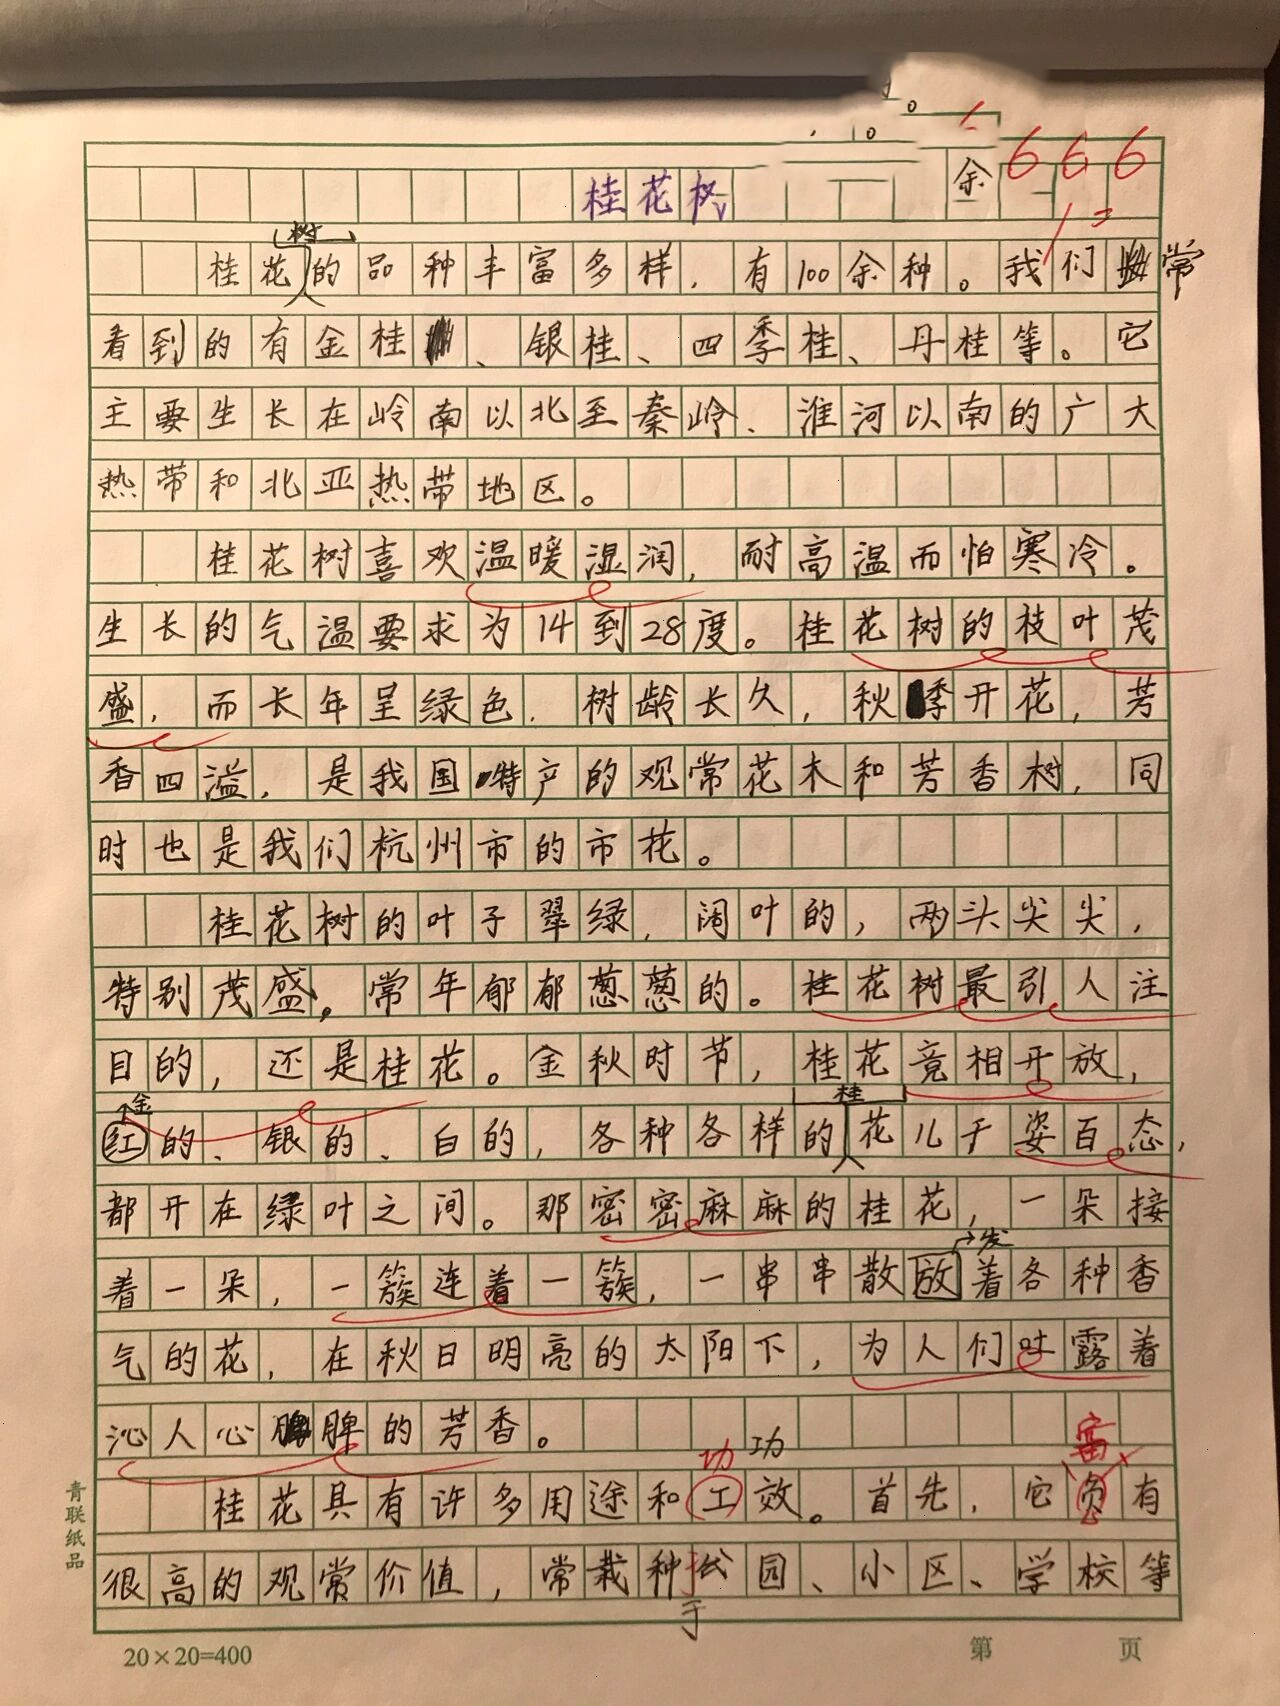 666
余
桂花树
树
桂花的品种丰富多样，有100余种。我们常
看到的有金桂、银桂、四季桂、丹桂等。它
主要生长在岭南以北至秦岭、淮河以南的广大
热带和北亚热带地区。
桂花树喜欢温暖湿润，耐高温而怕寒冷。
生长的气温要求为14到28度。桂花树的枝叶茂
盛，而长年呈绿色，树龄长久，秋季开花，芳
香四溢，是我国特产的观常花木和芳香树，同
时也是我们杭州市的市花。
桂花树的叶子翠绿，阔叶的，两头尖尖，
特别茂盛。常年郁郁葱葱的。桂花树最引人注
目的，还是桂花。金秋时节，桂花竟相开放，
金
桂
红的、银的、白的，各种各样的花儿千姿百态，
都开在绿叶之间。那密密麻麻的桂花，一朵接
发
着一朵，一簇连着一簇，一串串散放着各种香
气的花，在秋日明亮的太阳下，为人们吐露着
沁人心脾的芳香。
功功
富
桂花具有许多用途和工效。首先，它负有
很高的观赏价值，常栽种于公园、小区、学校等
于
青联纸品
20×20=400
第 页